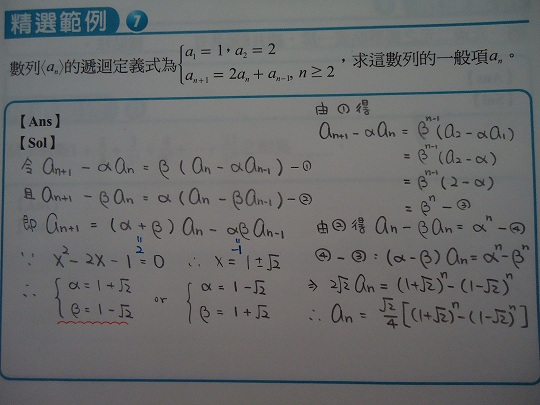 精選範例 7
數列⟨aₙ⟩的遞迴定義式為{a₁ = 1，a₂ = 2
aₙ₊₁ = 2aₙ + aₙ₋₁, n ≥ 2，求這數列的一般項aₙ。
【Ans】
【Sol】
令 aₙ₊₁ - αaₙ = β(aₙ - αaₙ₋₁) -①
且 aₙ₊₁ - βaₙ = α(aₙ - βaₙ₋₁) -②
即 aₙ₊₁ = (α + β)aₙ - αβaₙ₋₁
= 2 = -1
∵ x² - 2x - 1 = 0 ∴ x = 1 ± √2
∴ {α = 1 + √2 or {α = 1 - √2
β = 1 - √2 β = 1 + √2
由 ① 得
aₙ₊₁ - αaₙ = βⁿ⁻¹(a₂ - αa₁)
= βⁿ⁻¹(a₂ - α)
= βⁿ⁻¹(2 - α)
= βⁿ -③
由②得 aₙ - βaₙ = αⁿ -④
④ - ③ : (α - β)aₙ = αⁿ - βⁿ
⇒ 2√2 aₙ = (1+√2)ⁿ - (1-√2)ⁿ
∴ aₙ = √2/4 [(1+√2)ⁿ - (1-√2)ⁿ]